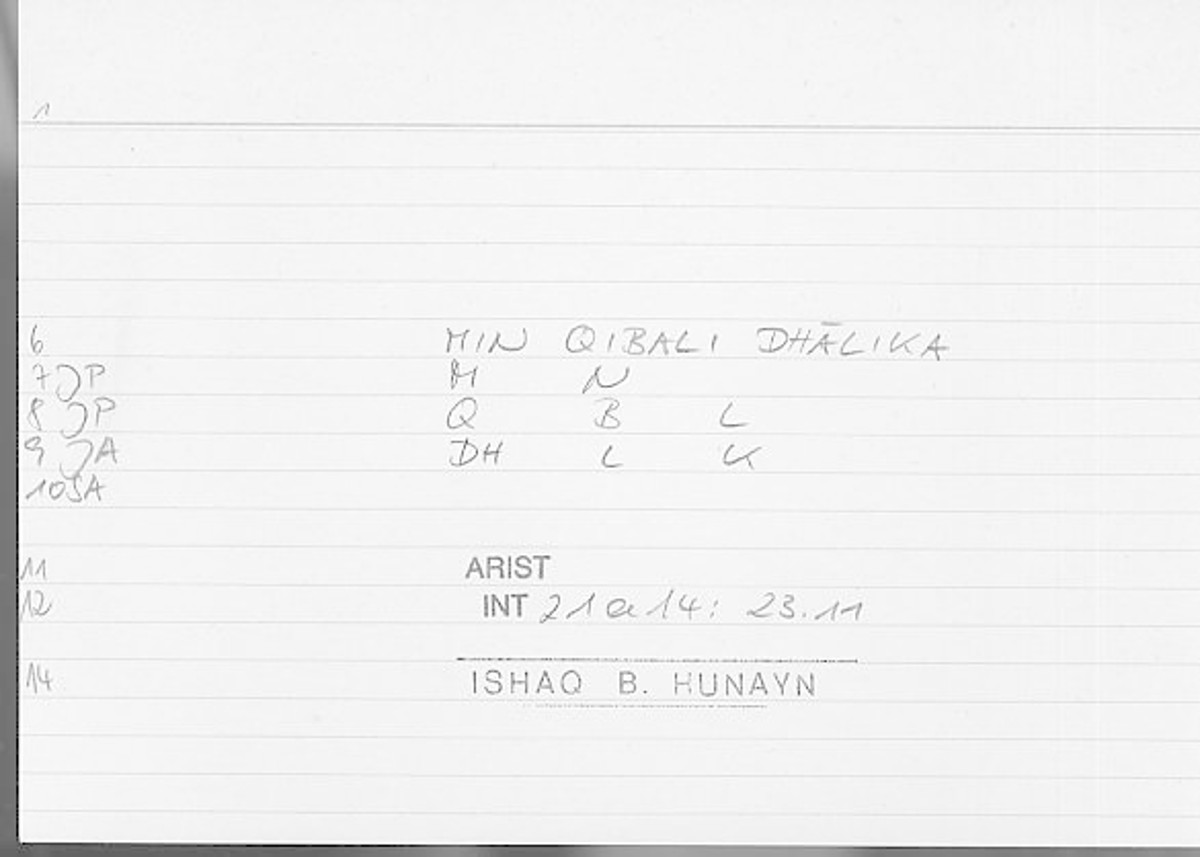 1
6 MIN QIBALI DHĀLIKA
7 JP M N
8 JP Q B L
9 JA DH L K
10 SA
11 ARIST
12 INT 21a14: 23.11
14 ISHAQ B. HUNAYN